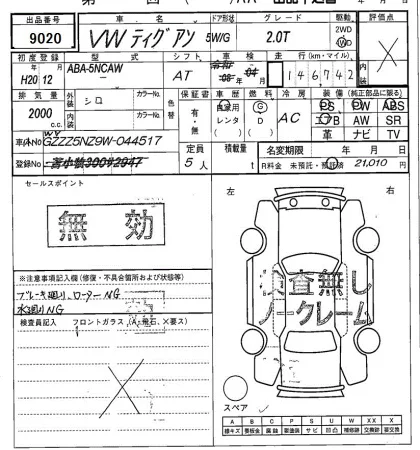 出品番号 車名 ドア形状 グレード 駆動 評価点
9020 VWティグアン 5W/G 2.0T 2WD
初度登録 型式 シフト 車検 走行(km・マイル)
H20 12 ABA-5NCAW AT 146742
排気量 外装 シロ カラーNo. 色替 保証書 車歴 燃料 冷房 装備(純正部品に限る)
2000 c.c. 内装 カラーNo. 有・無 自家用 レンタ G D AC PS PW ABS
AW SR
革 ナビ TV
車体No WVGZZZ5NZ9W-044517 定員 積載量 名変期限 年 月 日
登録No 5人 t R料金 未預託・預託済 21,010 円
セールスポイント
無効
左 右
※注意事項記入欄(修復・不具合箇所および状態等)
ブレーキ廻り、ローターNG
水廻りNG
検査員記入 フロントガラス(A,飛石,X要ス)
検査無し
ノークレーム
スペア
A B C P S U W X XX
線キズ 要板金 腐蝕 要塗装 サビ 凹凸 補修跡 交換跡 要交換